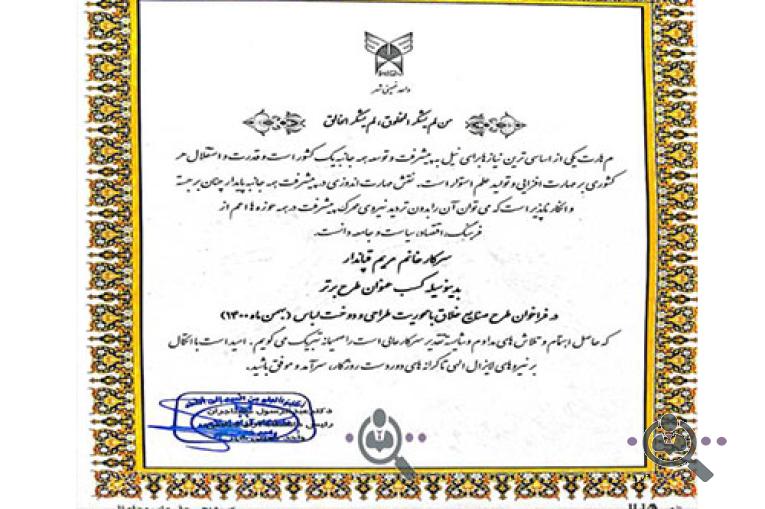 واحد خمینی شهر
من لم یشکر المخلوق، لم یشکر الخالق
مهارت یکی از اساسی ترین نیازها برای نیل به پیشرفت و توسعه همه جانبه یک کشور است و قدرت و استقلال هر
کشوری بر مهارت افزایی و تولید علم استوار است. نقش مهارت اندوزی در پیشرفت همه جانبه پایدار چنان برجسته
و انکار ناپذیر است که می توان آن را بدون تردید نیروی محرک پیشرفت در همه حوزه ها اعم از
فرهنگ، اقتصاد، سیاست و جامعه دانست.
سرکار خانم مریم قپاندار
بدینوسیله کسب عنوان طرح برتر
در فراخوان طرح صنایع خلاق با محوریت طراحی و دوخت لباس (بهمن ماه ۱۴۰۰)
که حاصل اهتمام و تلاش های مداوم و شایسته تقدیر سرکار عالی است را صمیمانه تبریک می گویم. امید است با اتکال
بر نیروهای لایزال الهی تا کرانه های دوردست روزگار، سرآمد و موفق باشید.
دکتر عبدالرسول
رئیس
واحد